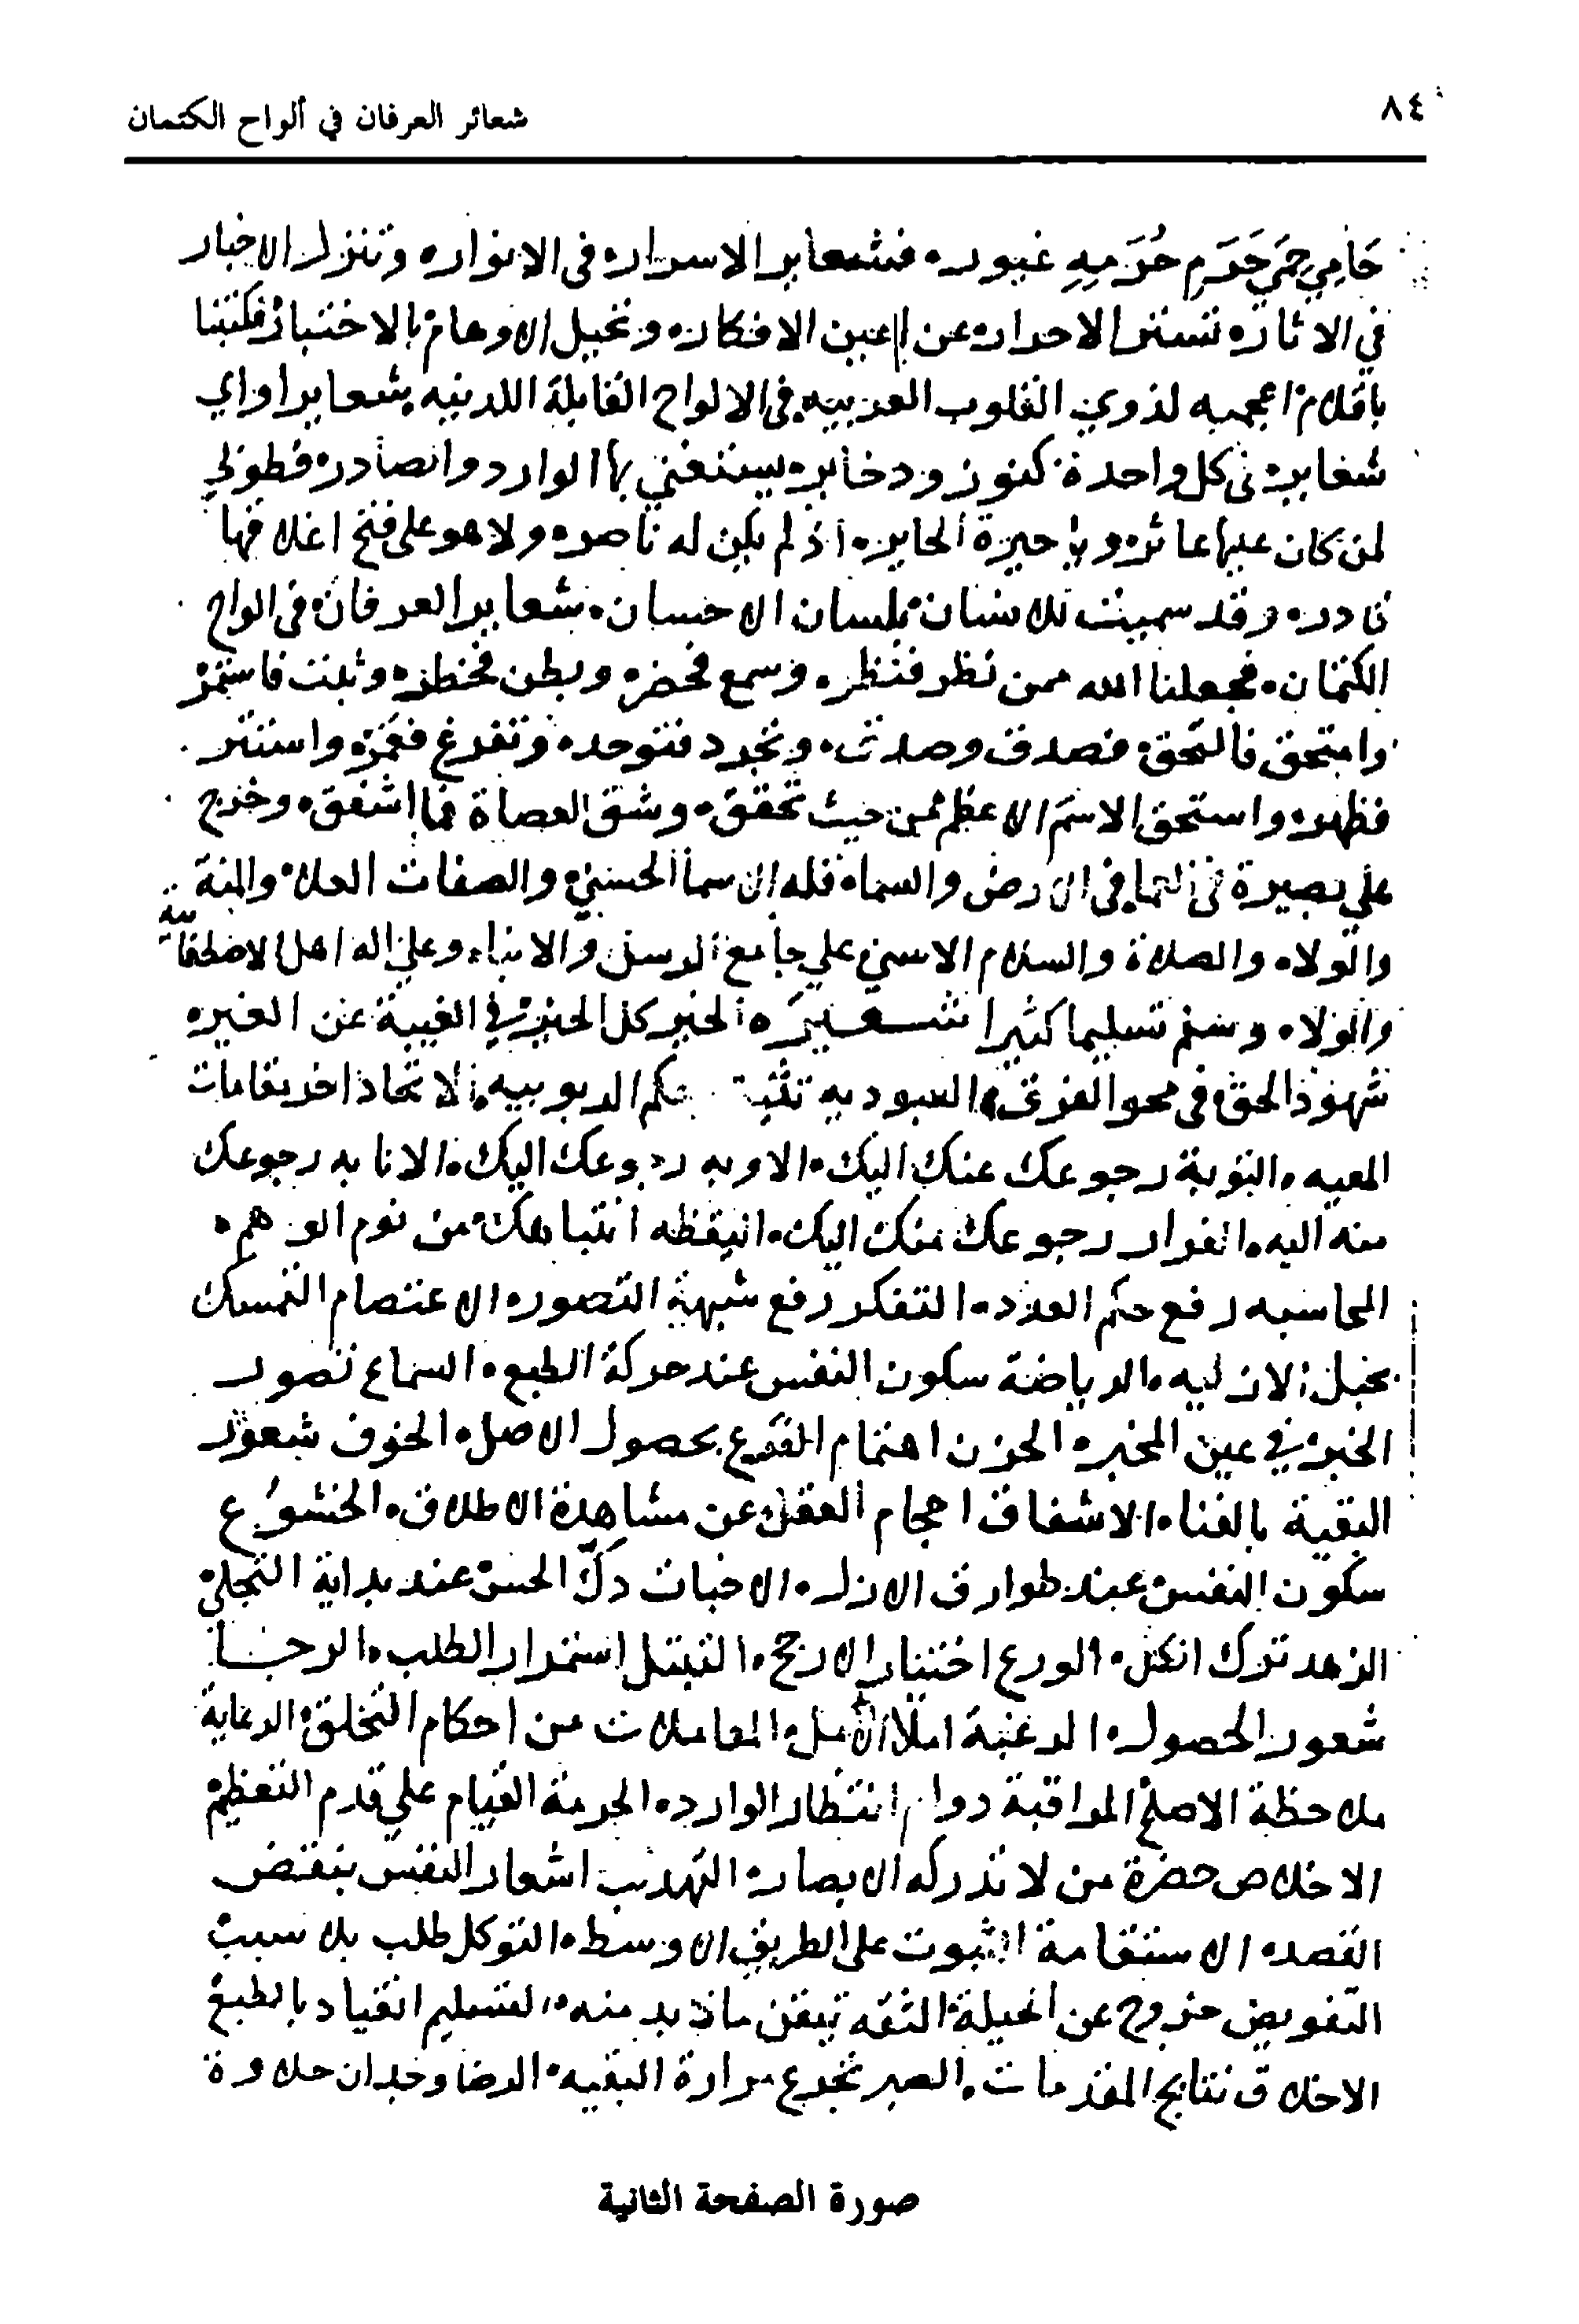 ٨٤
شعائر العرفان في ألواح الكتمان
حَامِي حِمَي حَرَمِ حُرَمِهِ غيور ه فشعاير الاسرار ه فى الانوار ه وتنزل الاخبار
في الاثار ه تستتر الاحرار ه عن اعين الافكار ه وتخيل الاوهام بالاختبار فكتبنا
باقلام اعجميه لذوي القلوب العربيه فى الالواح القابلة اللدنيه شعاير اواي
شعاير ه فى كل واحدة كنوز ودخاير ه يستغني بها الوارد والصادر ه فطوبي
لمن كان عليها عاثر ه ويا حيرة الحاير ه اذ لم يكن له ناصر ه ولا هو على فتح اغلاقها
قادر ه وقد سميت للانسان بلسان الاحسان ه شعاير العرفان فى الواح
الكتمان ه فجعلنا الله ممن نظر فنظر ه وسمع فحضر ه وبطن فخطر ه وثبت فاستمر
وامتحق فالتحق ه فصدق وصدق ه وتجرد فتوحد ه وتفرغ واستتر
فظهر ه واستحق الاسم الاعظم من حيث تحقق ه وشق العصاة فما اشفق ه وخرج
علي بصيرة فى الارض والسماء فله الاسما الحسني ه والصفات العلا ه والمنة
والولاء والصلاة والسلام الاسني علي جامع الرسل والانباء وعلي اله اهل الاصطفا
والولاء وسلم تسليما كثيرا شعيرة الخبر كل الخبر في الغيبة عن الغير ه
شهود الحق فى محو الفرق ه العبوديه حكم الربوبيه ه الاتحاد اخر مقامات
المعيه ه التوبة رجوعك عنك اليك ه الاوبه رجوعك اليك ه الانابه رجوعك
منه اليه ه الفرار رجوعك منك اليك ه اليقظه انتباهك من نوم الوهم ه
المحاسبه رفع حكم العدد ه التفكر رفع شبهة التصور ه الاعتصام التمسك
بحبل الازليه ه الرياضة سكون النفس عند حركة الطبع ه السماع تصور
الخبر في عين المخبر ه الحزن اهتمام الفرع بحصول الاصل ه الخوف شعور
البقية بالفناء ه الاشفاق احجام العقل عن مشاهدة الاطلاق ه الخشوع
سكون النفس عند طوارق الازل ه الاخبات دكّ الحس عند بداية التجلي
الزهد ترك الكل ه الورع اختيار الارجح ه التبتل استمرار الطلب ه الرجا
شعور الحصول ه الرغبة املا الأمل ه المعاملات من احكام التخلق ه الرعاية
ملاحظة الاصلح المراقبة دوام انتظار الوارد ه الحرمة القيام علي قدم التعظيم
الاخلاص حضرة من لا تدركه الابصار ه التهذيب اشعار النفس بنقض
القصد ه الاستقامة الثبوت على الطريق الاوسط ه التوكل طلب بلا سبب
التفويض خروج عن الحيلة ه الثقه تيقن مالابد منه ه التسليم انقياد بالطبع
الاخلاق نتايج المقدمات ه الصبر تجرع مرارة البقيه ه الرضا وجدان حلاوة
صورة الصفحة الثانية